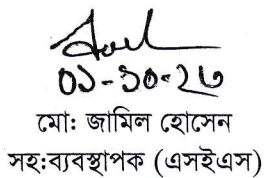 ০১-১০-২৩
মো: জামিল হোসেন
সহ:ব্যবস্থাপক (এসইএস)